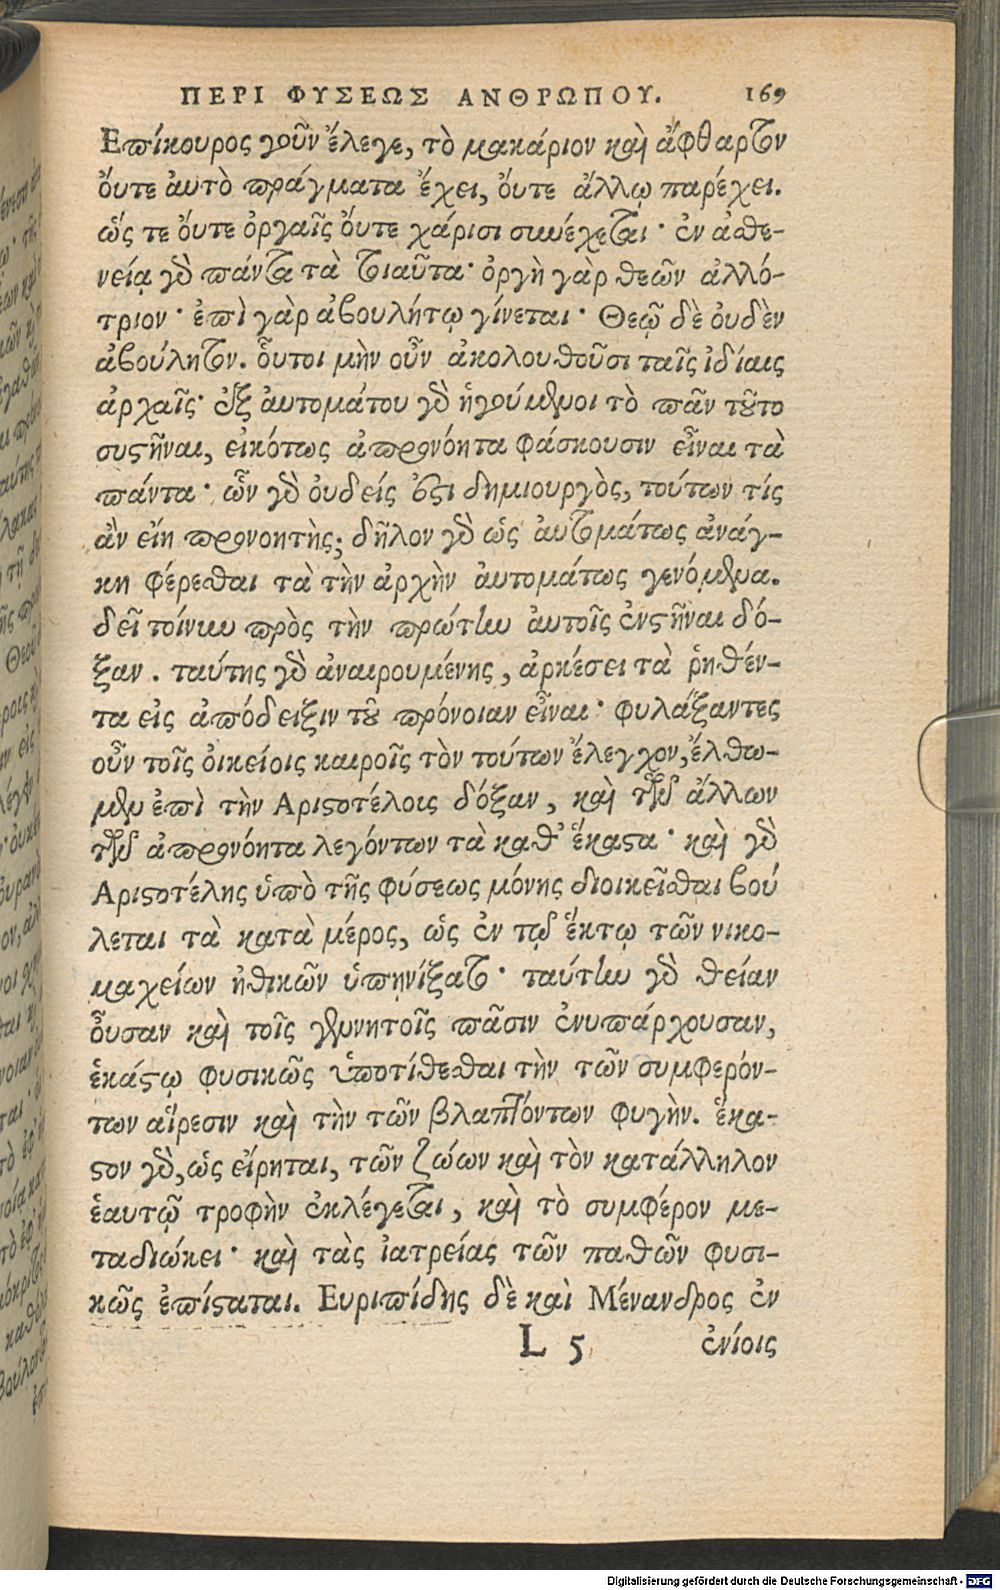 ΠΕΡΙ ΦΥΣΕΩΣ ΑΝΘΡΩΠΟΥ. 169
Επίκουρος γοῦν ἔλεγε, τὸ μακάριον καὶ ἄφθαρτον
ὄυτε ἀυτὸ πράγματα ἔχει, ὄυτε ἄλλῳ παρέχει.
ὥς τε ὄυτε ὀργαῖς ὄυτε χάρισι συνέχεται· ἐν ἀσθε-
νείᾳ γὸ πάντα τὰ τοιαῦτα· ὀργὴ γὰρ θεῶν ἀλλό-
τριον· ἐπὶ γὰρ ἀβουλήτῳ γίνεται· Θεῷ δὲ ὀυδὲν
ἀβούλητον. ὗτοι μὴν οὖν ἀκολουθοῦσι ταῖς ἰδίαις
ἀρχαῖς· ἐξ ἀυτομάτου γὸ ἡγούμενοι τὸ πᾶν τοῦτο
συςῆναι, εἰκότως ἀπρονόητα φάσκουσιν εἶναι τὰ
πάντα· ὧν γὸ ὀυδείς ἐςι δημιουργὸς, τούτων τίς
ἀν εἴη προνοητὴς; δῆλον γὸ ὡς ἀυτομάτως ἀνάγ-
κη φέρεσθαι τὰ τὴν ἀρχὴν ἀυτομάτως γενόμενα.
δεῖ τοίνυν πρὸς τὴν πρώτην ἀυτοῖς ἐνςῆναι δό-
ξαν. ταύτης γὸ ἀναιρουμένης, ἀρκέσει τὰ ῥηθέν-
τα εἰς ἀπόδειξιν τοῦ πρόνοιαν εἶναι· φυλάξαντες
οὖν τοῖς ὀικείοις καιροῖς τὸν τούτων ἔλεγχον, ἔλθω-
μεν ἐπὶ τὴν Αριςοτέλοις δόξαν, καὶ τῶν ἄλλων
τῶν ἀπρονόητα λεγόντων τὰ καθ' ἕκαςα· καὶ γὸ
Αριςοτέλης ὑπὸ τῆς φύσεως μόνης διοικεῖσθαι βού
λεται τὰ κατὰ μέρος, ὡς ἐν τῷ ἕκτῳ τῶν νικο-
μαχείων ἠθικῶν ὑπῃνίξατο· ταύτην γὸ θείαν
ὖσαν καὶ τοῖς γεννητοῖς πᾶσιν ἐνυπάρχουσαν,
ἑκάςῳ φυσικῶς ὑποτίθεσθαι τὴν τῶν συμφερόν-
των αἵρεσιν καὶ τὴν τῶν βλαπτόντων φυγὴν. ἕκα-
ςον γὸ, ὡς εἴρηται, τῶν ζώων καὶ τὸν κατάλληλον
ἑαυτῷ τροφὴν ἐκλέγεται, καὶ τὸ συμφέρον με-
ταδιώκει· καὶ τὰς ἰατρείας τῶν παθῶν φυσι-
κῶς ἐπίςαται. Ευριπίδης δὲ καὶ Μένανδρος ἐν
L 5 ἐνίοις
Digitalisierung gefördert durch die Deutsche Forschungsgemeinschaft - DFG